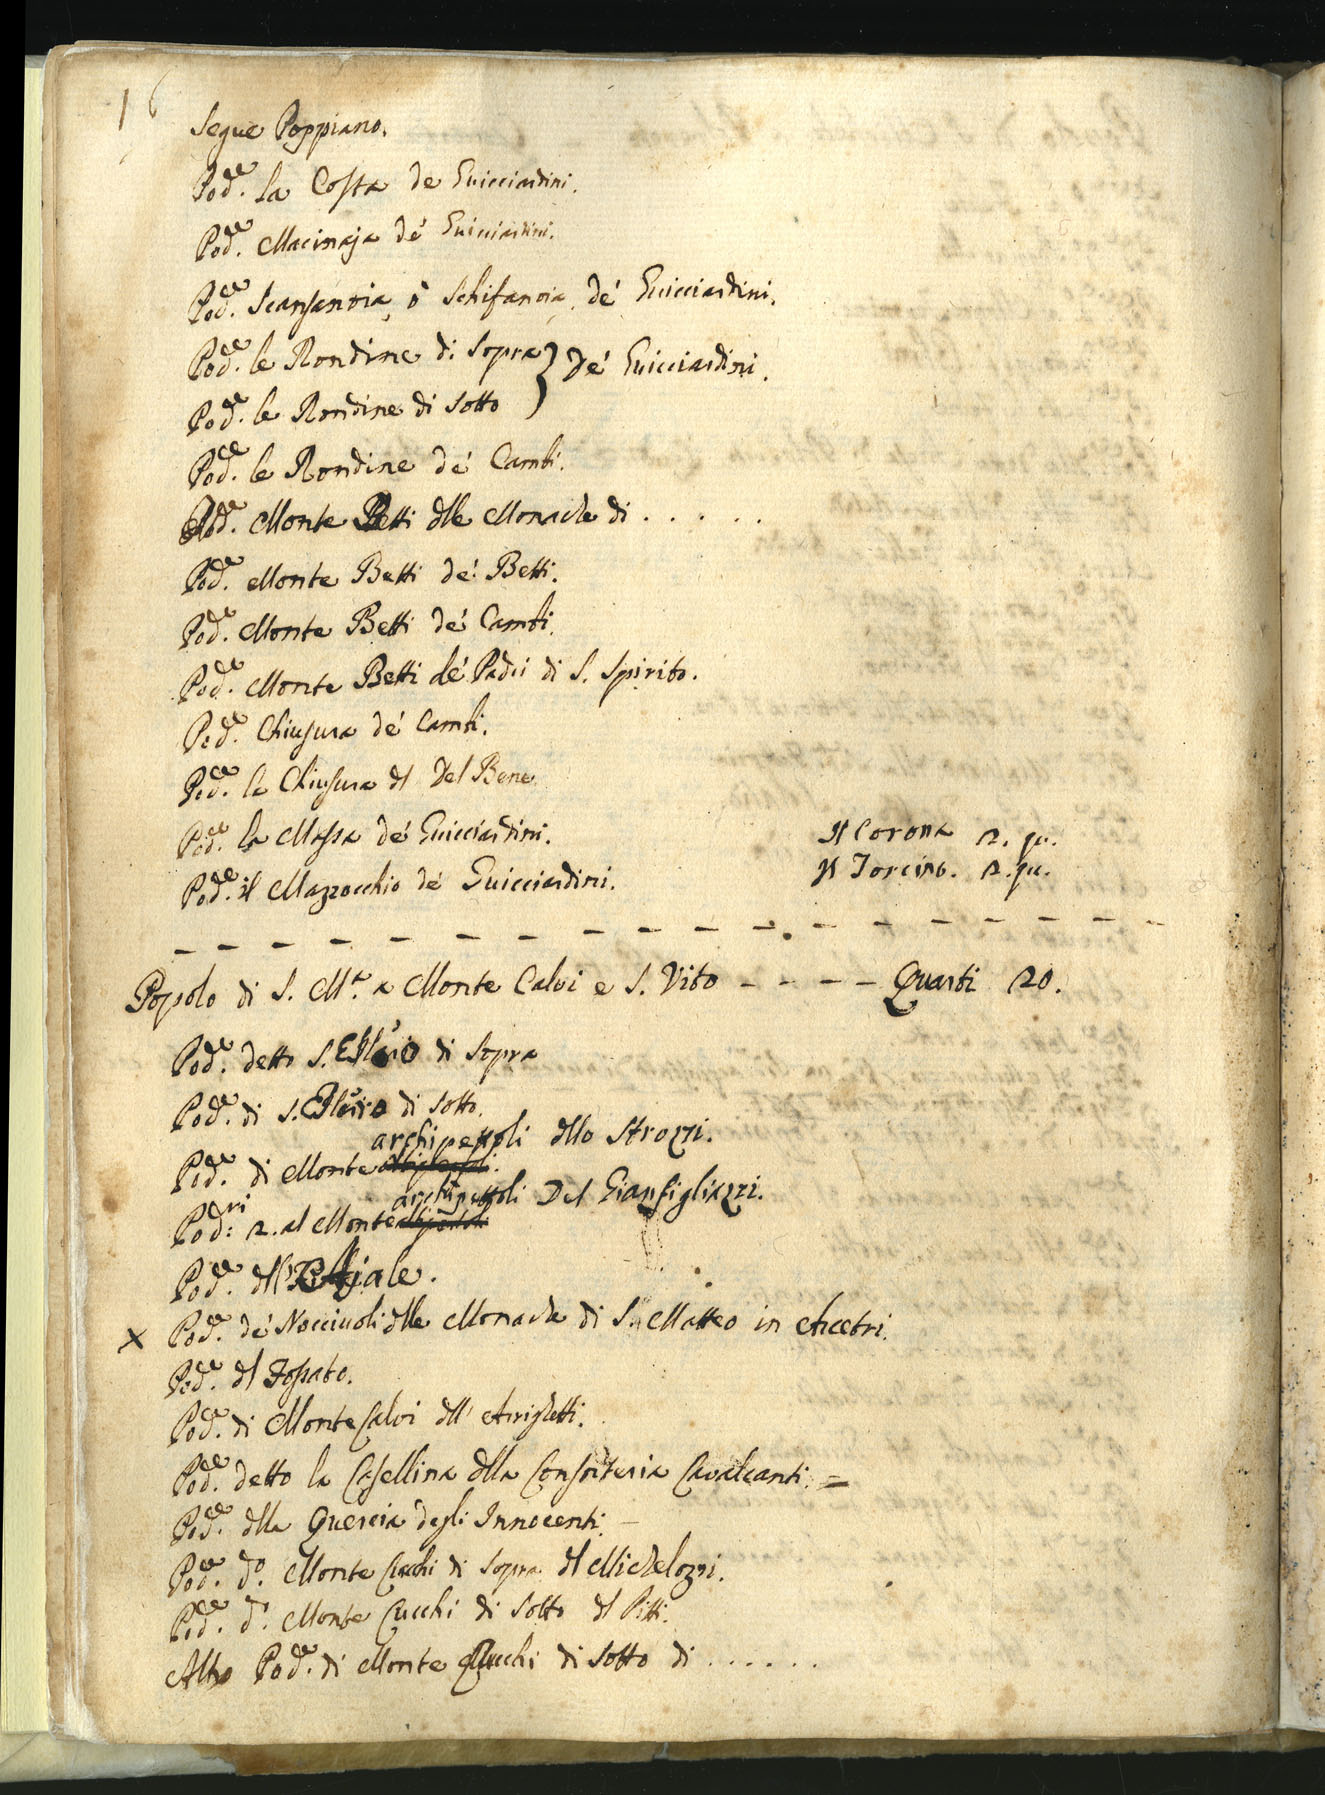 16
Segue Poppiano.
Pod.ᵉ la Costa de Guicciardini.
Pod.ᵉ Macinaja de' Guicciardini.
Pod.ᵉ Scansanoia, ò Schifanoia, de' Guicciardini.
Pod.ᵉ le Rondine di Sopra } de' Guicciardini.
Pod.ᵉ le Rondine di Sotto
Pod.ᵉ le Rondine de' Cambi.
Pod.ᵉ Monte Betti dlle Monache di . . . . .
Pod.ᵉ Monte Betti de' Betti.
Pod.ᵉ Monte Betti de' Cambi.
Pod.ᵉ Monte Betti de' Padri di S. Spirito.
Pod.ᵉ Chiusura de' Cambi.
Pod.ᵉ la Chiusura dl Del Bene
Pod.ᵉ la Massa de' Guicciardini.
Il Corona 2. qu.
Pod.ᵉ il Mazzocchio de' Guicciardini.
Il Torcino. 2. qu.
Popolo di S. M.ᵃ a Monte Calvi e S. Vito - - - - Quarti 20.
Pod.ᵉ detto S. di Sopra
Pod.ᵉ di S. di Sotto.
archipettoli dllo Strozzi.
Pod.ᵉ di Monte
archipettoli Del Gianfigliazzi.
Pod:ʳⁱ 2. al Monte
Pod.ᵉ dll
X Pod.ᵉ de' Nocciuoli dlle Monache di S. Matteo in Arcetri.
Pod.ᵉ dl Fossato.
Pod.ᵉ di Monte Calvi dll' Arrighetti.
Pod.ᵉ detto la Casellina dlla Consorteria Cavalcanti. =
Pod.ᵉ dlla Quercia degli Innocenti.
Pod.ᵉ d.º Monte Cucchi di Sopra dl Michelozzi.
Pod.ᵉ d.º Monte Cucchi di Sotto dl Pitti.
Altro Pod.ᵉ di Monte Cucchi di Sotto di . . . . . .